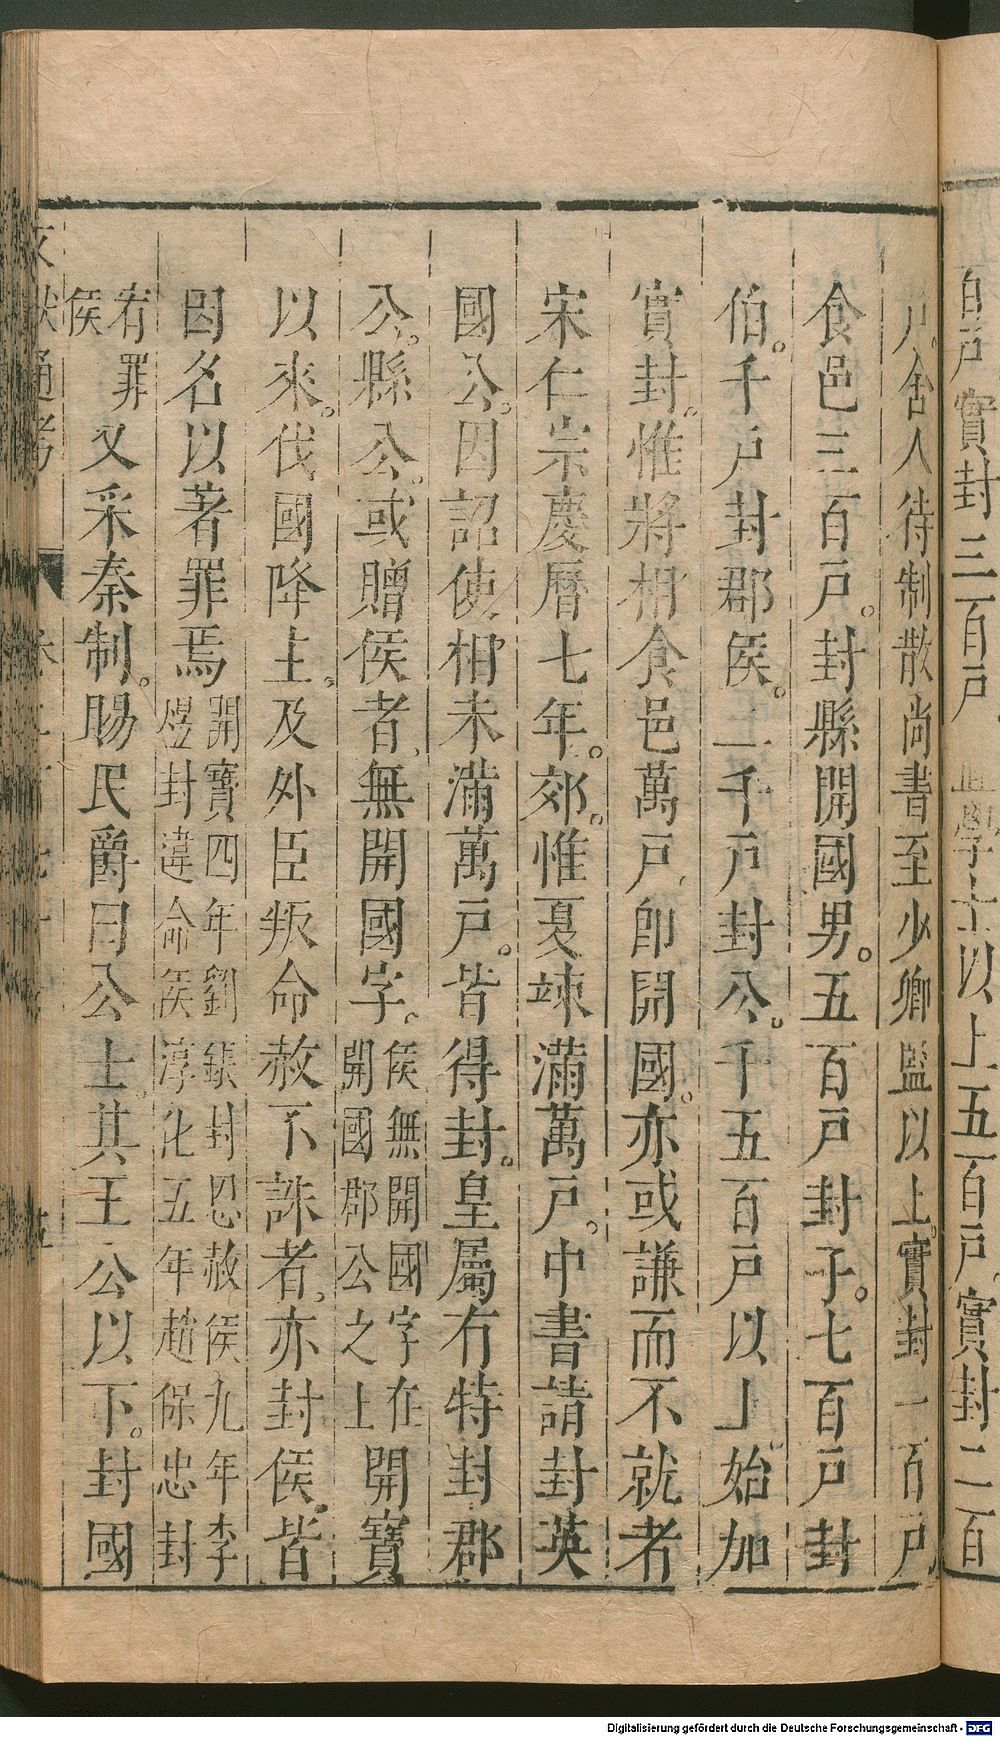 百戶實封三百戶。直學士以上五百戶。實封二百
戶。舍人待制散尚書至少卿監以上。實封一百戶
食邑三百戶。封縣開國男。五百戶封子。七百戶封
伯。千戶封郡侯。二千戶封公。千五百戶以上。始加
實封。惟將相食邑萬戶即開國。亦或謙而不就者
宋仁宗慶曆七年。郊。惟夏竦滿萬戶。中書請封英
國公。因詔使相未滿萬戶。皆得封。皇屬有特封郡
公。縣公。或贈侯者、無開國字。侯無開國字在開國郡公之上開寶
以來。伐國降主。及外臣叛命赦不誅者、亦封侯。皆
因名以著罪焉開寶四年劉鋹封恩赦侯九年李煜封違命侯淳化五年趙保忠封
宥罪侯又采秦制。賜民爵曰公士。其王公以下。封國
文獻通考
Digitalisierung gefördert durch die Deutsche Forschungsgemeinschaft - DFG